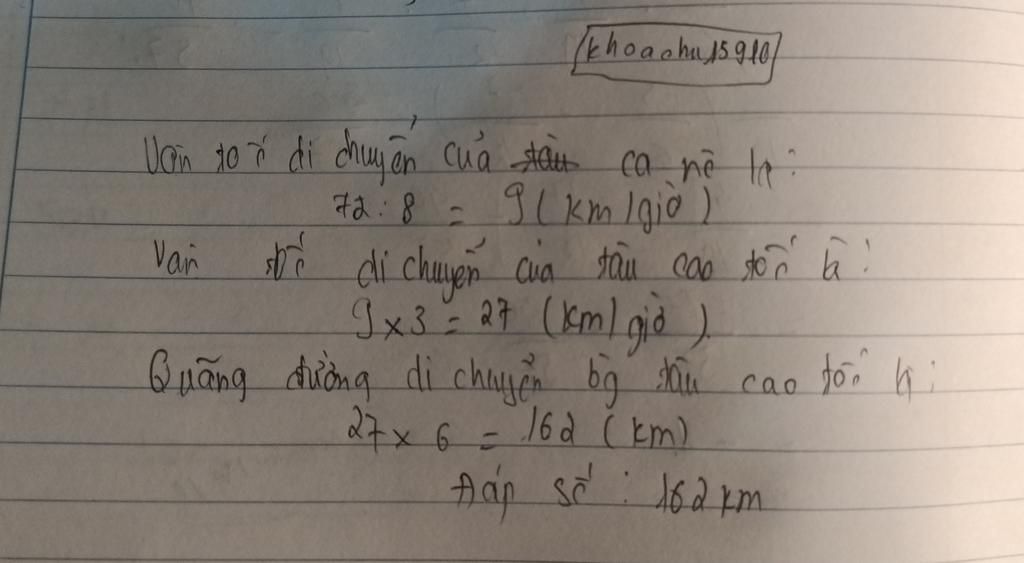 khoachu15910
Vận tốc di chuyển của tàu ca nô là:
72 : 8 = 9 (km/giờ)
Vận tốc di chuyển của tàu cao tốc là:
9 x 3 = 27 (km/giờ)
Quãng đường di chuyển bg tàu cao tốc là:
27 x 6 = 162 (km)
Đáp số : 162 km